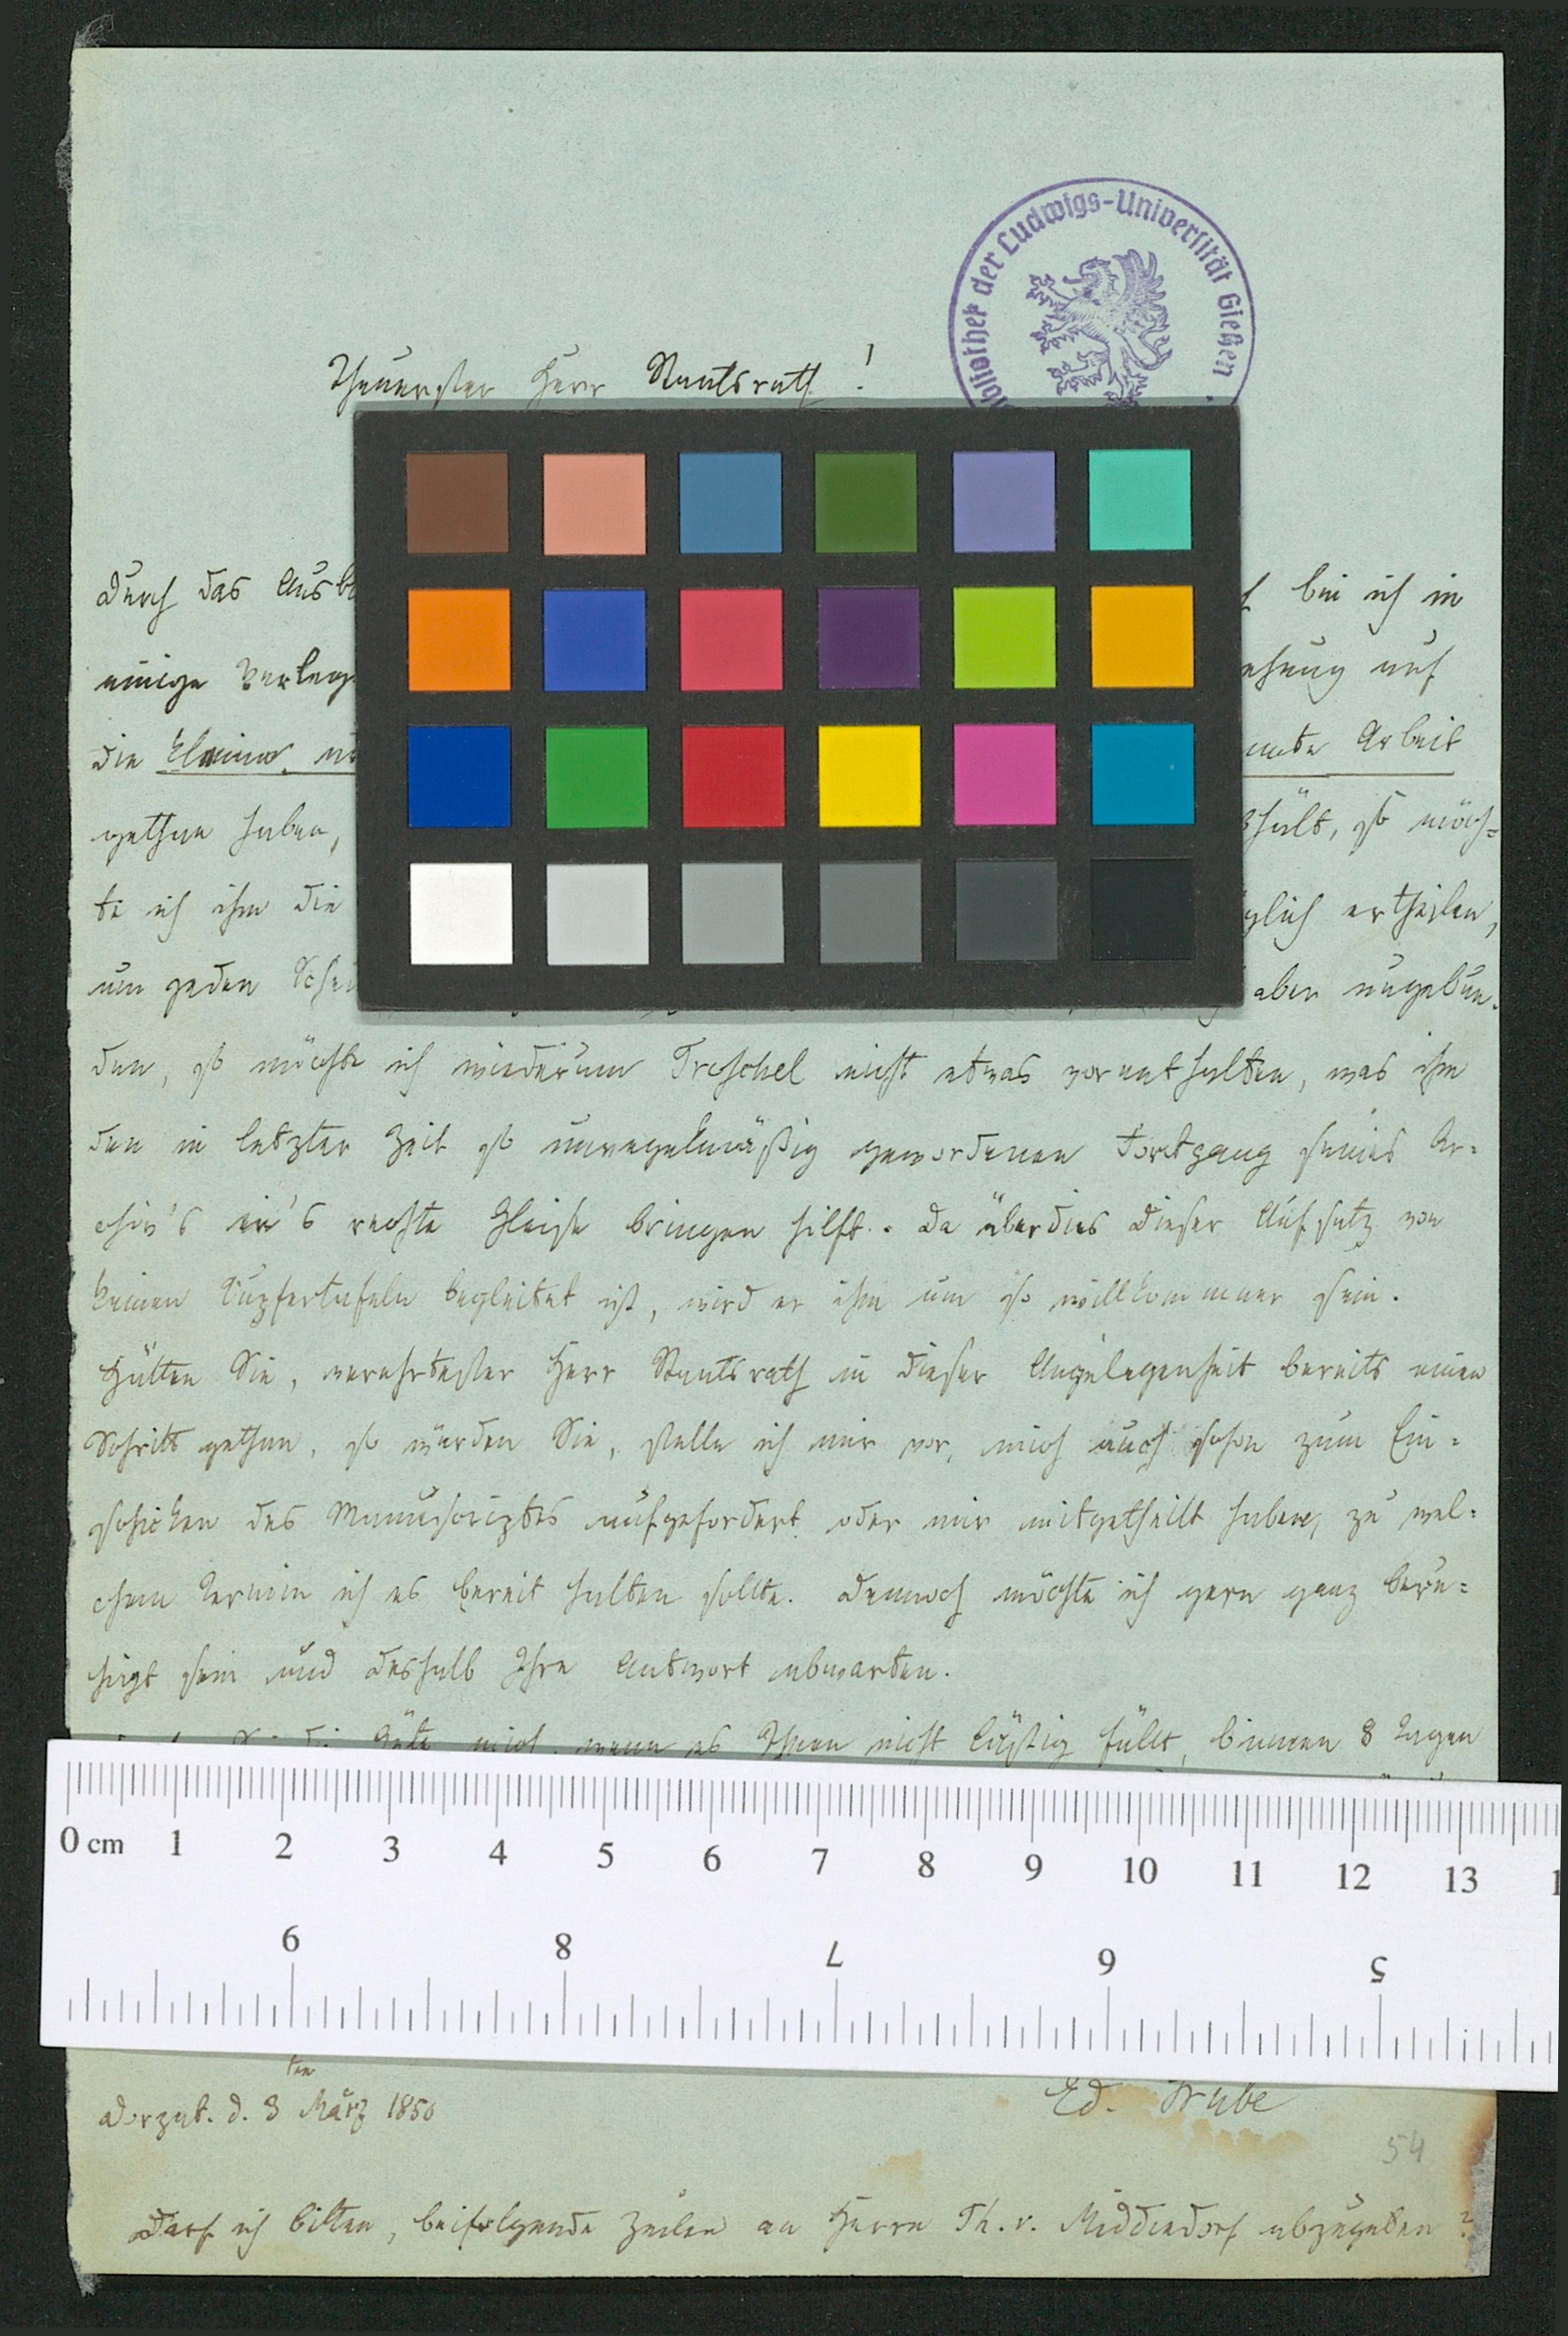 Bibliothek der Ludwigs-Universität Gießen
Theuerster Herr Staatsrath!
Durch das Ausb
bin ich in
einige Verleg
ehung auf
die kleine
Arbeit
gethan haben,
so möch=
te ich ihm die
glich ertheilen,
um jeden Schei
aber ungebun-
den, so möchte ich wiederum Troschel nicht etwas vorenthalten, was ihm
den in letzter Zeit so unregelmäßig gewordenen Fortgang seines Ar=
chiv's in's rechte Gleise bringen hilft. Da überdies dieser Aufsatz von
keinen Kupfertafeln begleitet ist, wird er ihm um so willkommner sein.
Hätten Sie, verehrtester Herr Staatsrath in dieser Angelegenheit bereits einen
Schritt gethan, so würden Sie, stelle ich mir vor, mich auch schon zum Ein=
schicken des Manuscriptes aufgefordert oder mir mitgetheilt haben, zu wel=
chem Termin ich es bereit halten sollte. Dennoch möchte ich gern ganz beru=
higt sein und deshalb Ihre Antwort abwarten.
Güte mich, wenn es Ihnen nicht lästig fällt, binnen 8 Tagen
0 cm 1 2 3 4 5 6 7 8 9 10 11 12 13 1
9 8 7 6 5
Dorpat. d. 8 ten März 1856
Ed. Grube
54
Darf ich bitten, beifolgende Zeilen an Herrn Th. v. Middendorf abzugeben?